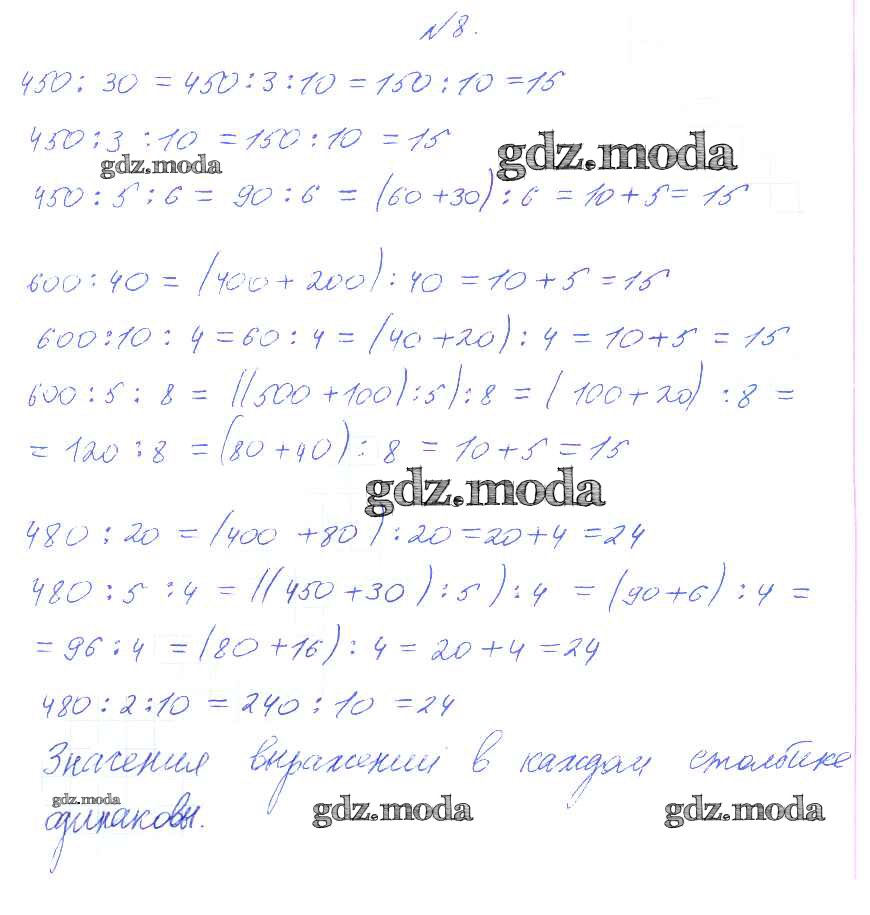 № 8.
450 : 30 = 450 : 3 : 10 = 150 : 10 = 15
450 : 3 : 10 = 150 : 10 = 15
gdz.moda gdz.moda
450 : 5 : 6 = 90 : 6 = (60 + 30) : 6 = 10 + 5 = 15
600 : 40 = (400 + 200) : 40 = 10 + 5 = 15
600 : 10 : 4 = 60 : 4 = (40 + 20) : 4 = 10 + 5 = 15
600 : 5 : 8 = ((500 + 100) : 5) : 8 = (100 + 20) : 8 =
= 120 : 8 = (80 + 40) : 8 = 10 + 5 = 15
gdz.moda
480 : 20 = (400 + 80) : 20 = 20 + 4 = 24
480 : 5 : 4 = ((450 + 30) : 5) : 4 = (90 + 6) : 4 =
= 96 : 4 = (80 + 16) : 4 = 20 + 4 = 24
480 : 2 : 10 = 240 : 10 = 24
Значения выражений в каждом столбике
gdz.moda gdz.moda gdz.moda
одинаковы.